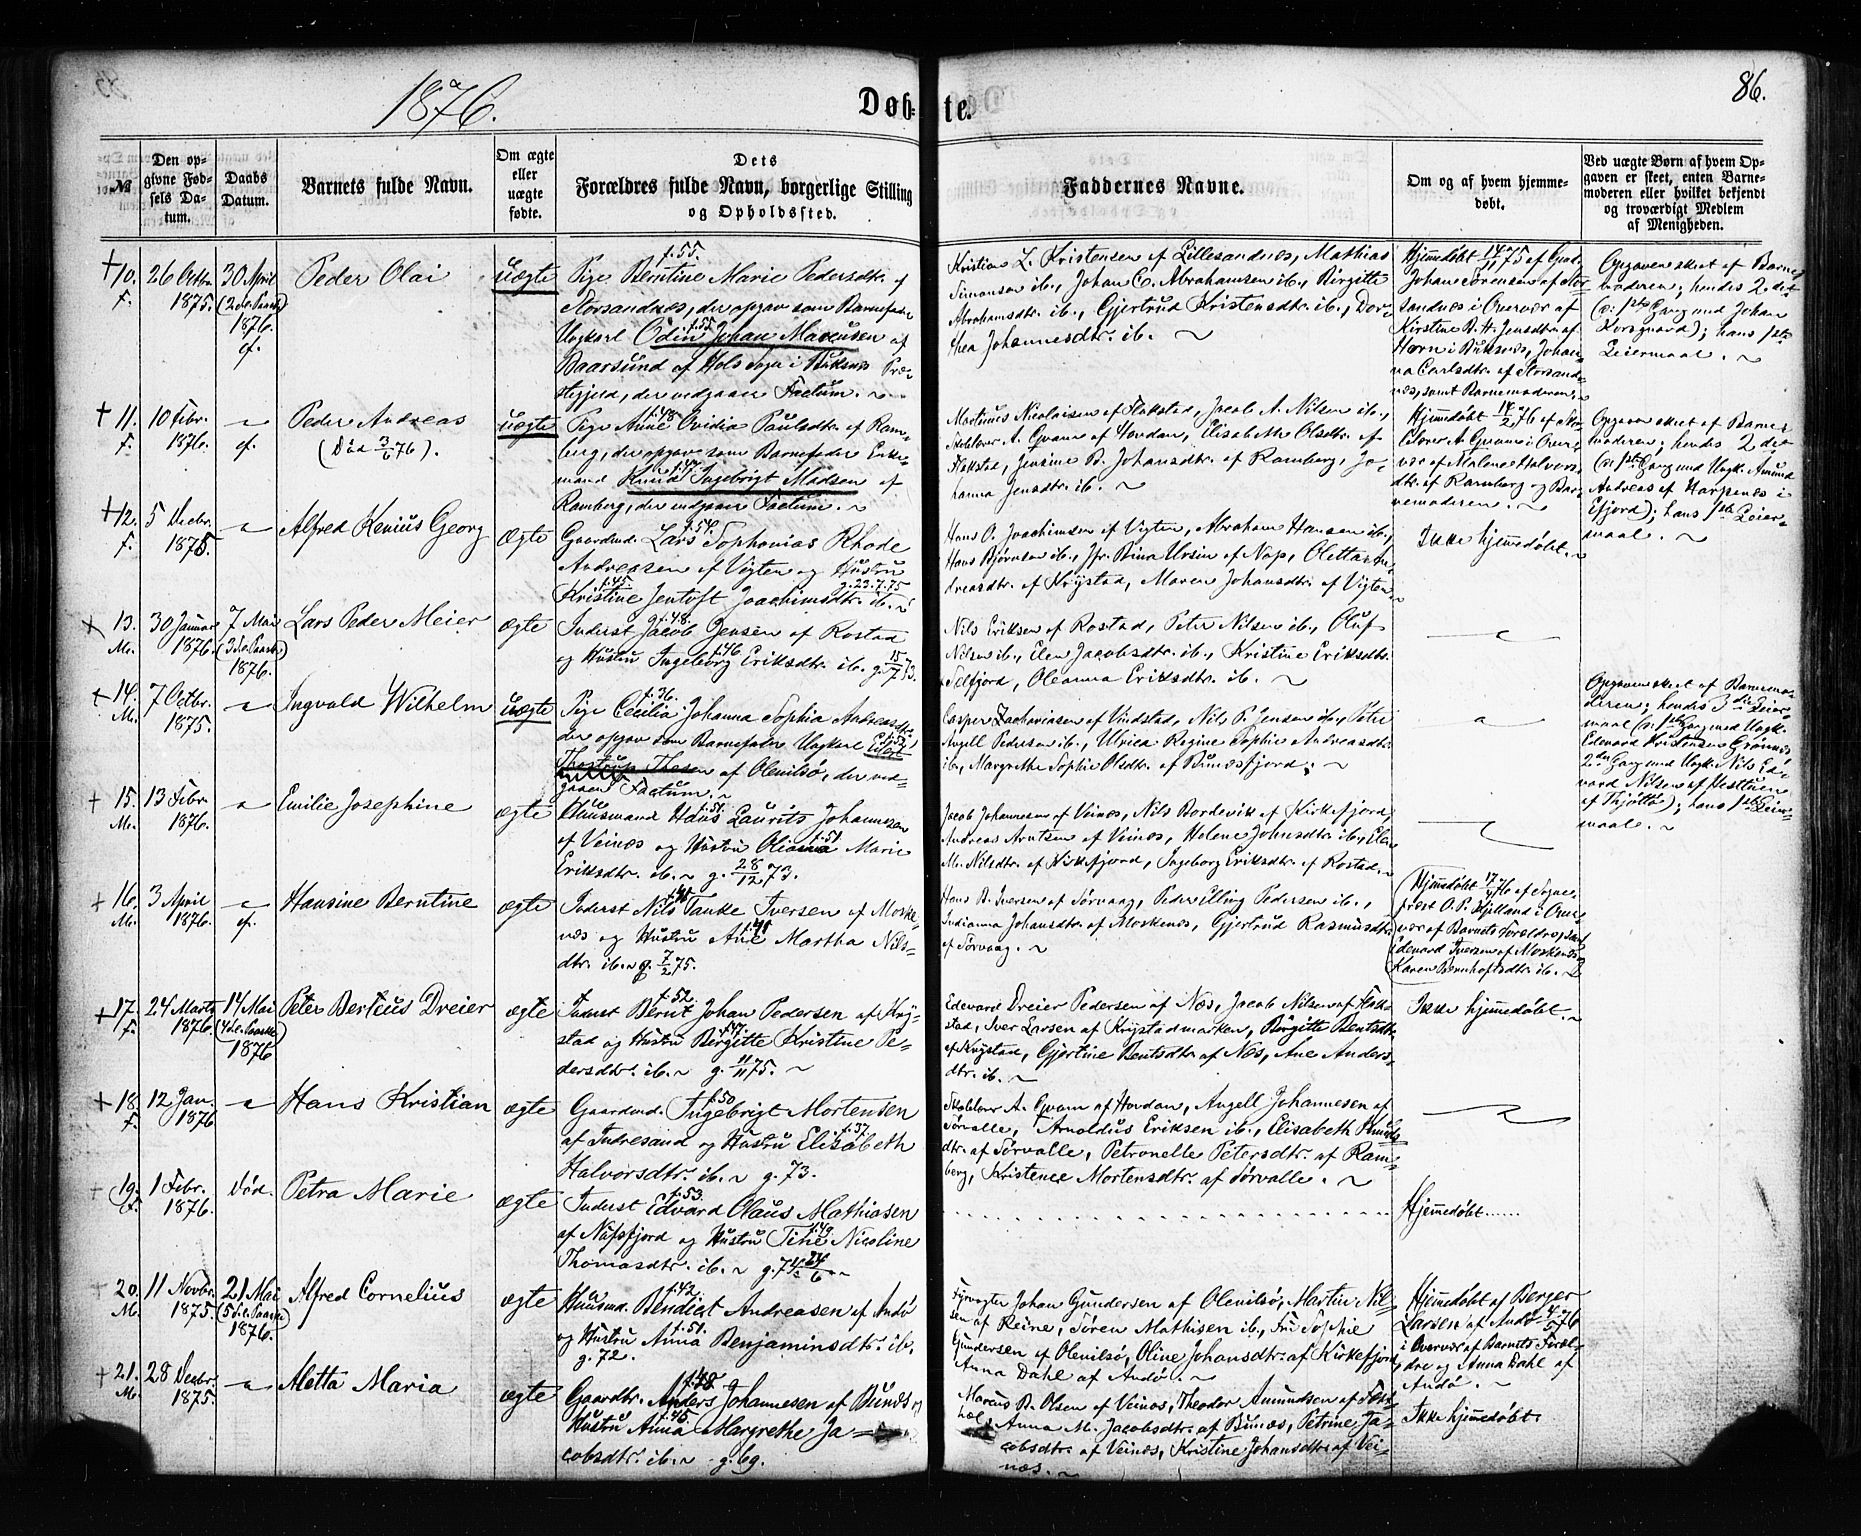 1876.
Døb-te.
86.
No
Den op-
givne Fød-
sels Da-
tum.
Daabs
Datum.
Barnets fulde Navn.
Om ægte
eller
uægte
fødte.
Dets
Forældres fulde Navn, borgerlige Stilling
og Opholdssted.
Faddernes Navne.
Om og af hvem hjemme-
døbt.
Ved uægte Børn af hvem Op-
gaven er skeet, enten Barne-
moderen eller hvilket bekjendt
og troværdigt Medlem
af Menigheden.
10.
F.
26 Octbr.
1875.
30 April
(2 S.e. Paaske)
1876.
Peder Olai
uægte
f. 55.
Pige Berntine Marie Pedersdtr. af
Storsandnæs, der opgav som Barnefader
Ungkarl Odin Johan Mareusen af
Baarsund af Hols Sogn i Buksnæs Præ-
stegjeld, der vedgaaer Factum. ~
Kristian Z. Kristensen af Lillesandnæs, Mathias
Simonsen ib., Johan C. Abrahamsen ib., Birgitte
Abrahamsdtr. ib., Gjertrud Kristensdtr. ib., Dor-
thea Johannesdtr. ib. ~
Hjemmedøbt 14/11 75 af Gad.
Johan Sörensen af Stor-
sandnæs i Overvær af
Kirstine B. H. Jensdtr. af
Horn i Buksnæs, Johan-
na Carlsdtr. af Storsand-
næs, samt Barnemoderen.
Opgaven skeet af Barne-
moderen; hendes 2det
(o: 1ste Gang med Johan
Korsgaard); hans 1ste
Leiermaal. ~
11.
F.
10 Febr.
1876.
Peder Andreas
(Död 3/6 76).
uægte
f. 48.
Pige Anne Ovidia Paulsdtr. af Ram-
berg, der opgav som Barnefader Enke-
mand Knud Ingebrigt Madsen af
Ramberg, der vedgaaer Factum. ~
Martinus Nicolaisen af Flakstad, Jacob A. Nilsen ib.,
Skolelærer A. Qvam af Hovdan, Elisabeth Olsdtr. af
Flakstad, Jensine B. Johansdtr. af Ramberg, Jo-
hanna Jensdtr. ib. ~
Hjemmedøbt 14/2 76 af Sko-
lelærer A. Qvam i Over-
vær af Malene Halvors-
dtr. af Ramberg og Bar-
nemoderen. ~
Opgaven skeet af Barne-
moderen; hendes 2det
(o: 1ste Gang med Ungk. Amund
Andreas af Harpenæs i
Eifjord); hans 1ste Leier-
maal. ~
12.
F.
5 Decbr.
1875.
Alfred Kenius Georg
ægte
f. 54.
Gaardmd. Lars Sophonias Rhode
Andreasen af Vigten og Hustru
f. 45. g. 23.7.75
Kristine Jentoft Joachimsdtr. ib. ~
Hans O. Joachimsen af Vigten, Abraham Hansen ib.,
Hans Bjørnsen ib., Jfr. Bina Ursin af Nap, Oletta An-
dreasdtr. af Krystad, Maren Johansdtr. af Vigten.
Ikke hjemmedøbt. ~
13.
M.
30 Januar
1876.
7 Mai
(3 S.e. Paaske)
1876.
Lars Peder Meier
ægte
f. 48.
Inderst Jacob Jensen af Rostad
f. 46
og Hustru Ingeborg Eriksdtr. ib. g. 15/7 73.
Nils Eriksen af Rostad, Peter Nilsen ib., Oluf
Nilsen ib., Elen Jacobsdtr. ib., Kristine Eriksdtr.
Selfjord, Oleanna Eriksdtr. ib. ~
14.
M.
7 Octbr.
1875.
Ingvald Wilhelm
uægte
f. 36.
Pige Cecilia Johanna Sophia Andreasdtr.,
der opgav som Barnefader Ungkarl
af Olenilsö, der ved-
gaaer Factum. ~
Casper Zachariasen af Vindstad, Nils P. Jensen ib., Petri
Angell Pedersen ib., Ulrica Regine Sophie Andreasdtr.
ib., Margrethe Sophie Olsdtr. af Bunæsfjord. ~
Opgaven skeet af Barnemo-
deren; hendes 3die Leier-
maal (o: 1ste Gang med Ungk.
Edevard Kristensen Grønnes
2den Gang med Ungk. Nils Ed-
vard Nilsen af Hestluen
af Thjøttø); hans 1ste Leier-
maal. ~
15.
M.
13 Febr.
1876.
Emilie Josephine
ægte
f. 51.
Huusmand Hans Laurits Johannesen
af Veinæs og Hustru Olianna Marie
Eriksdtr. ib. ~ g. 28/12 73.
Jacob Johannesen af Veinæs, Nils Bordevik af Kirkefjord,
Andreas Arntsen af Veinæs, Helene Johnsdtr. ib., Elen
M. Nilsdtr. af Kirkefjord, Ingeborg Eriksdtr. af Rostad. ~
16.
M.
3 April
1876.
Hansine Berntine
ægte
Inderst Nils Tanke Iversen af Moske-
næs og Hustru Ane Martha Nils-
dtr. ib. ~ g. 7/2 75.
Hans B. Iversen af Sørvaag, Peder Elling Pedersen ib.,
Indianna Johansdtr. af Moskenæs, Gjertrud Rasmusdtr.
af Sørvaag. ~
Hjemmedøbt 17/4 76 af Sogne-
præst O. P. Hjelland i Over-
vær af Barnets Forældre, samt
Edevard Iversen af Moskenæs,
Karen Bernhoftsdtr. ib. ~
17.
F.
24 Marts
1876.
14 Mai
(4 S.e. Paaske)
1876
Peter Berteus Dreier
ægte
f. 52.
Inderst Bernt Johan Pedersen af Kry-
f. 47.
stad og Hustru Bergitte Kristine Pe-
dersdtr. ib. ~ g. 11/11 75. ~
Edevard Dreier Pedersen af Næs, Jacob Nilsen af Flak-
stad, Iver Larsen af Krystadmarken, Birgitte Bentsdtr.
af Krystad, Gjertine Bentsdtr. af Næs, Ane Anders-
dtr. ib. ~
Ikke hjemmedøbt. ~
18.
F.
12 Jan.
1876
Hans Kristian
ægte
f. 50
Gaardmd. Ingebrigt Mortensen
f. 37.
af Indresand og Hustru Elisabeth
Halvorsdtr. ib. ~ g. 73.
Skolelærer A. Qvam af Hovdan, Angell Johannesen af
Sørvalle, Arnoldus Eriksen ib., Elisabeth Knuds-
dtr. af Sørvalle, Petronelle Petersdtr. af Ram-
berg, Kristence Mortensdtr. af Sørvalle. ~
19.
F.
1 Febr.
1876.
Död.
Petra Marie
ægte
f. 53.
Inderst Edvard Olaus Mathiasen
f. 49
af Næpsfjord og Hustru Tine Nicoline
Thomasdtr. ib. ~
Hjemmedøbt.......
20.
M.
11 Novbr.
1875.
21 Mai
(5 S.e. Paaske)
1876.
Alfred Cornelius
ægte
f. 42.
Huusmd. Bendigt Andreasen af Andø
f. 51.
og Hustru Anna Benjaminsdtr. ib.
g. 72.
Fyrvogter Johan Gundersen af Olenilsö, Martin Nil-
sen af Reine, Søren Mathisen ib., Fru Sophie
Gundersen af Olenilsö, Oline Johansdtr. af Kirkefjord,
Anna Dahl af Andø. ~
Hjemmedøbt af Berger
Larsen af Andø 4/5 76
i Overvær af Barnets Foræl-
dre og Anna Dahl af
Andø. ~
21.
M.
28 Decbr.
1875.
Aletta Maria
ægte
f. 48.
Gaardbr. Anders Johannesen af Bunæs og
f. 45.
Hustru Anna Margrethe Ja-
cobsdtr. ib. ~ g. 69.
Marcus B. Olsen af Veinæs, Theodor Amundsen af
Anna M. Jacobsdtr. af Bunæs, Petrine Ja-
cobsdtr. af Veinæs, Kristine Johansdtr. af Vei-
næs. ~
Ikke hjemmedøbt.